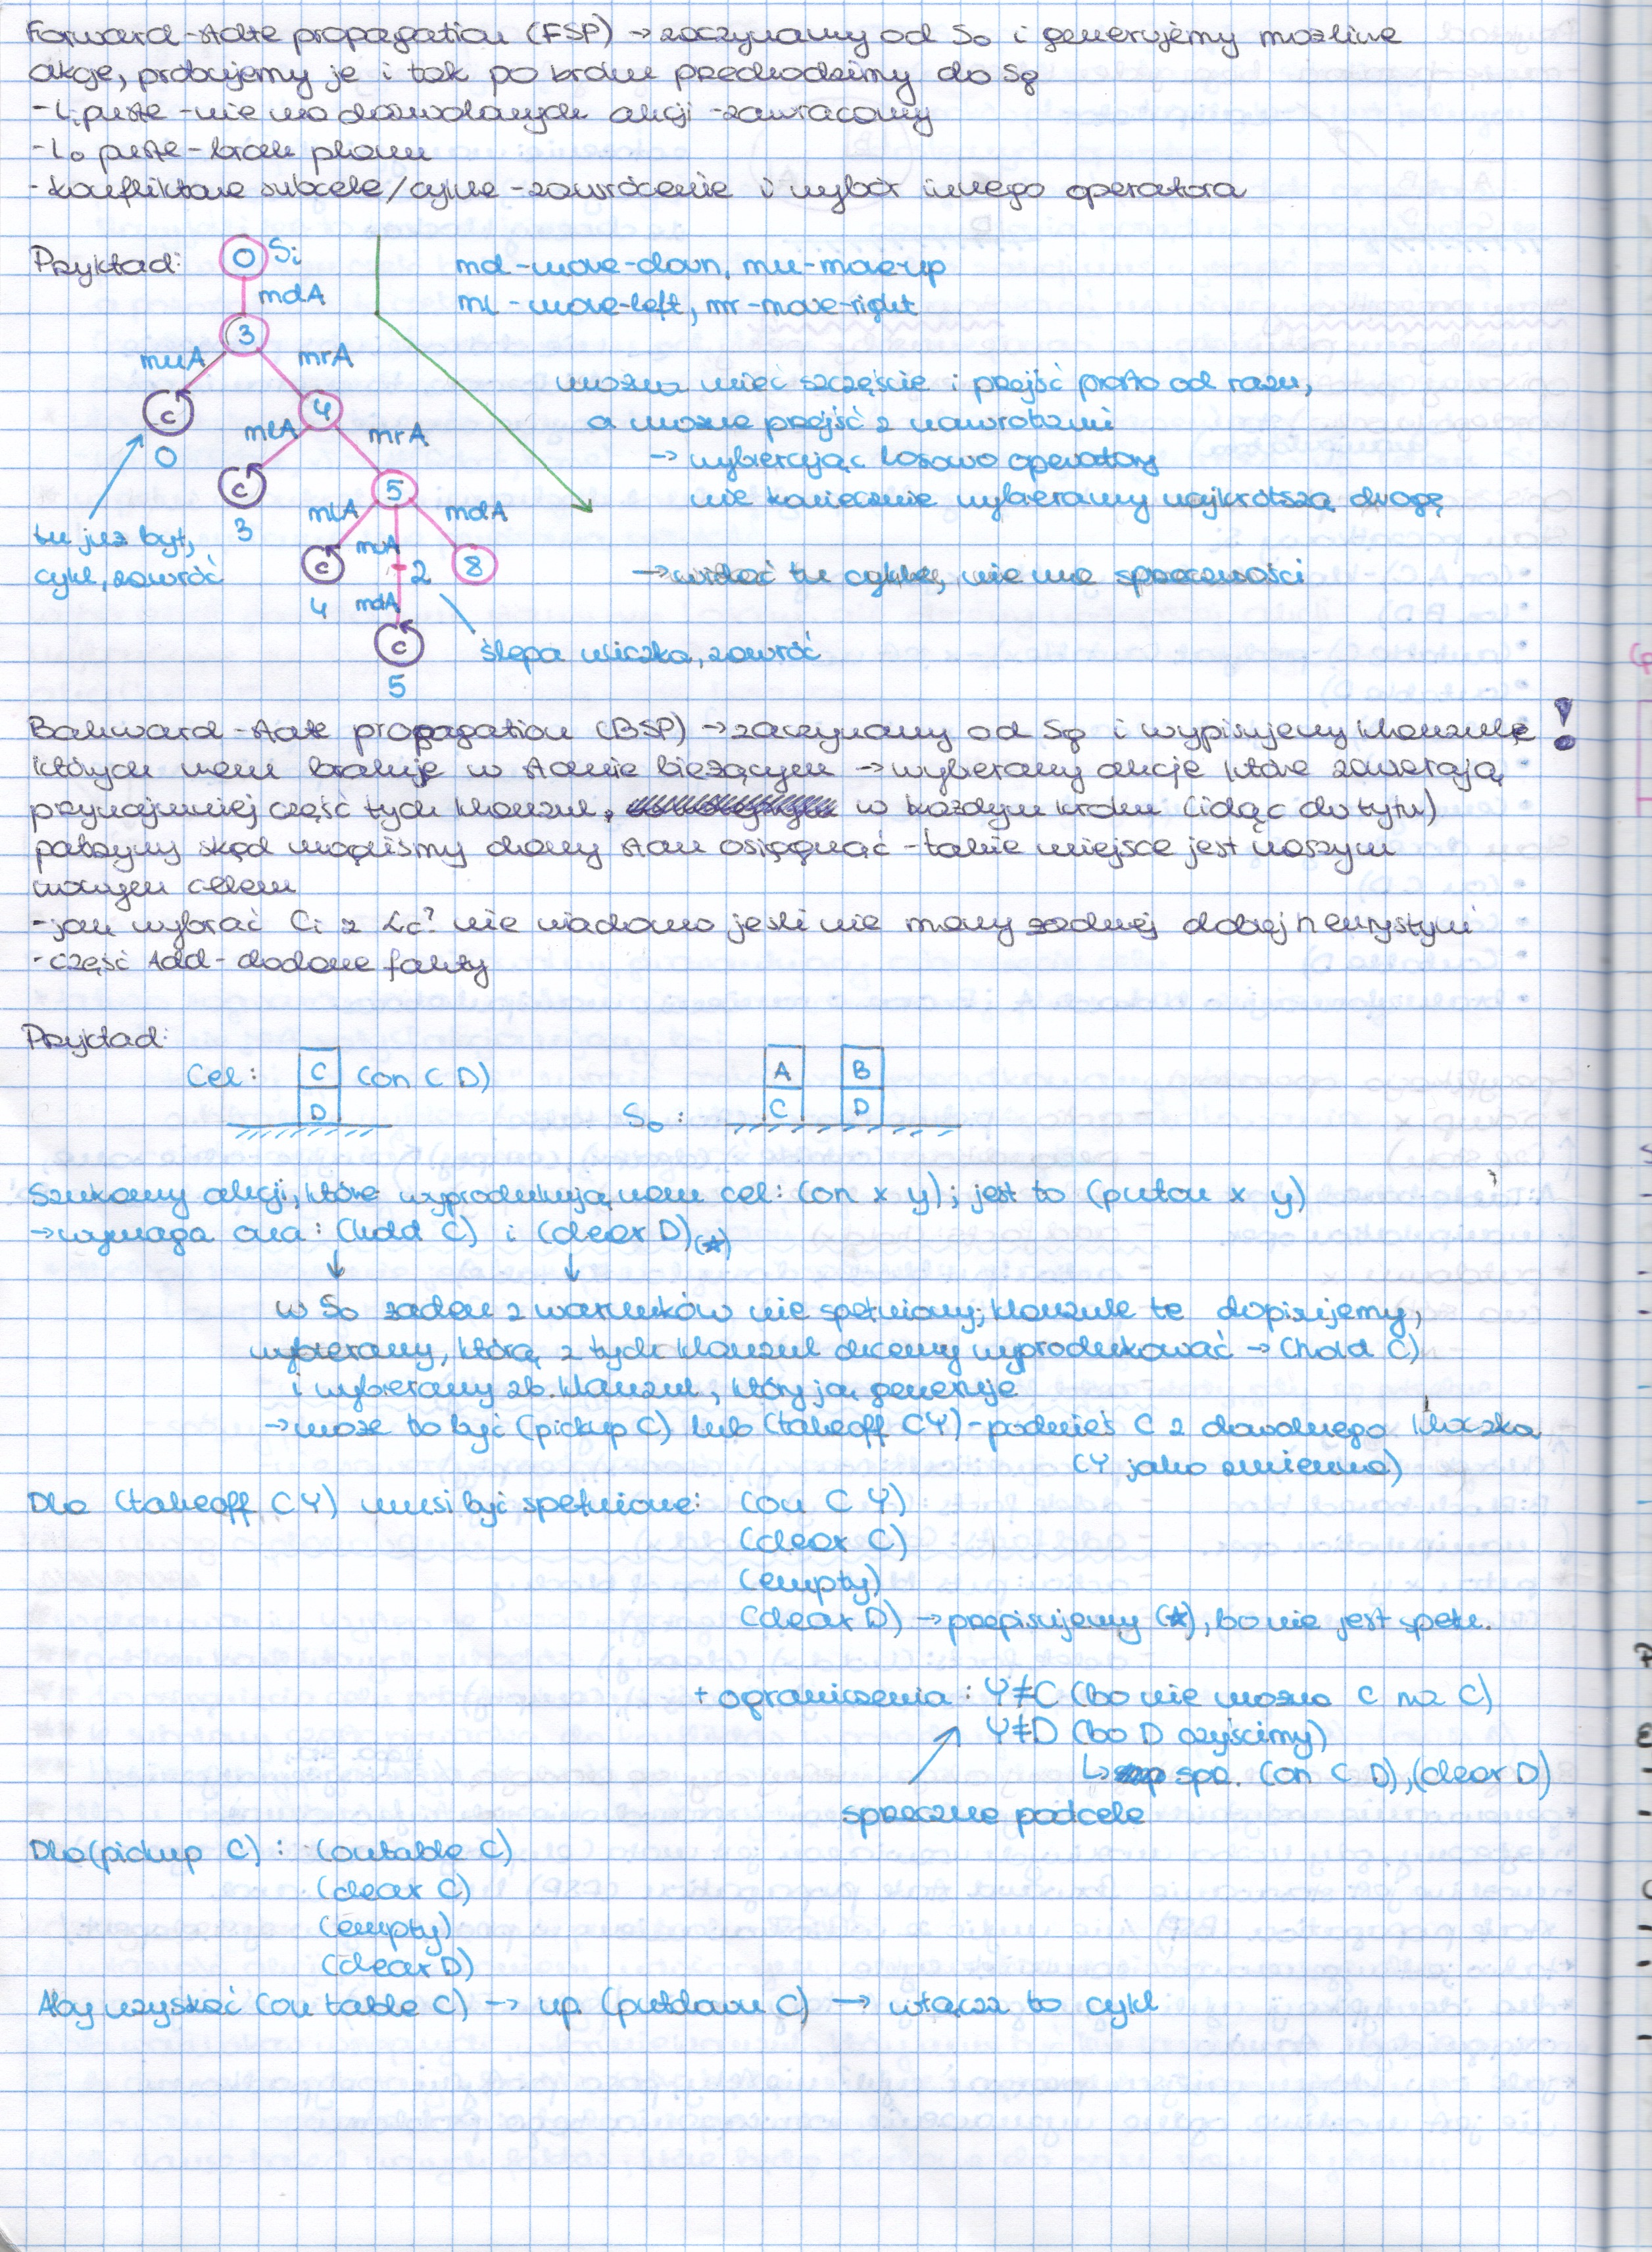 Forward-state propagation (FSP) → zaczynamy od S₀ i generujemy możliwe
akcje, próbujemy je i tak po kroku przechodzimy do Sg
- Li puste - nie ma dozwolonych akcji - zawracamy
- L₀ puste - brak planu
- konfliktowe subcele/cykle - zawrócenie i wybór innego operatora
Przykład:
0 Si
mdA
3
muA mrA
c
0
4
mlA mrA
c
3
5
mlA muA mdA
c
4
2
8
mdA
c
5
tu już był,
cykl, zawróć
ślepa uliczka, zawróć
md - move-down, mu - move-up
ml - move-left, mr - move-right
można mieć szczęście i przejść prosto od razu,
a można przejść z nawrotami
→ wybierając losowo operatory
nie koniecznie wybieramy najkrótszą drogę
→ widać tu cykle, nie ma sprzeczności
Bakward-state propagation (BSP) → zaczynamy od Sg i wypisujemy klauzule !
których nam brakuje w stanie bieżącym → wybieramy akcje które zawierają
przynajmniej część tych klauzul, w każdym kroku (idąc do tyłu)
patrzymy skąd mogliśmy dany stan osiągnąć - takie miejsce jest naszym
nowym celem
- jak wybrać Ci z Lc? nie wiadomo jeśli nie mamy żadnej dobrej heurystyki
- część Add - dodane fakty
Przykład:
Cel: C (on C D)
D
S₀: A B
C D
Szukamy akcji, które wyprodukują nam cel: (on x y); jest to (puton x y)
→ wymaga ona: (hold C) i (clear D)(*)
w S₀ żaden z warunków nie spełniony; klauzule te dopisujemy,
wybieramy, którą z tych klauzul chcemy wyprodukować → (hold C)
i wybieramy zb. klauzul, który ją generuje
→ może to być (pickup C) lub (takeoff C Y) - podnieś C z dowolnego klocka
(Y jako zmienna)
Dla (takeoff C Y) musi być spełnione: (on C Y)
(clear C)
(empty)
(clear D) → przepisujemy (*), bo nie jest spełn.
+ ograniczenia: Y≠C (bo nie można C na C)
Y≠D (bo D czyścimy)
↳ spr. (on C D), (clear D)
sprzeczne podcele
Dla (pickup C): (ontable C)
(clear C)
(empty)
(clear D)
Aby uzyskać (on table C) → np. (putdown C) → włącza to cykl